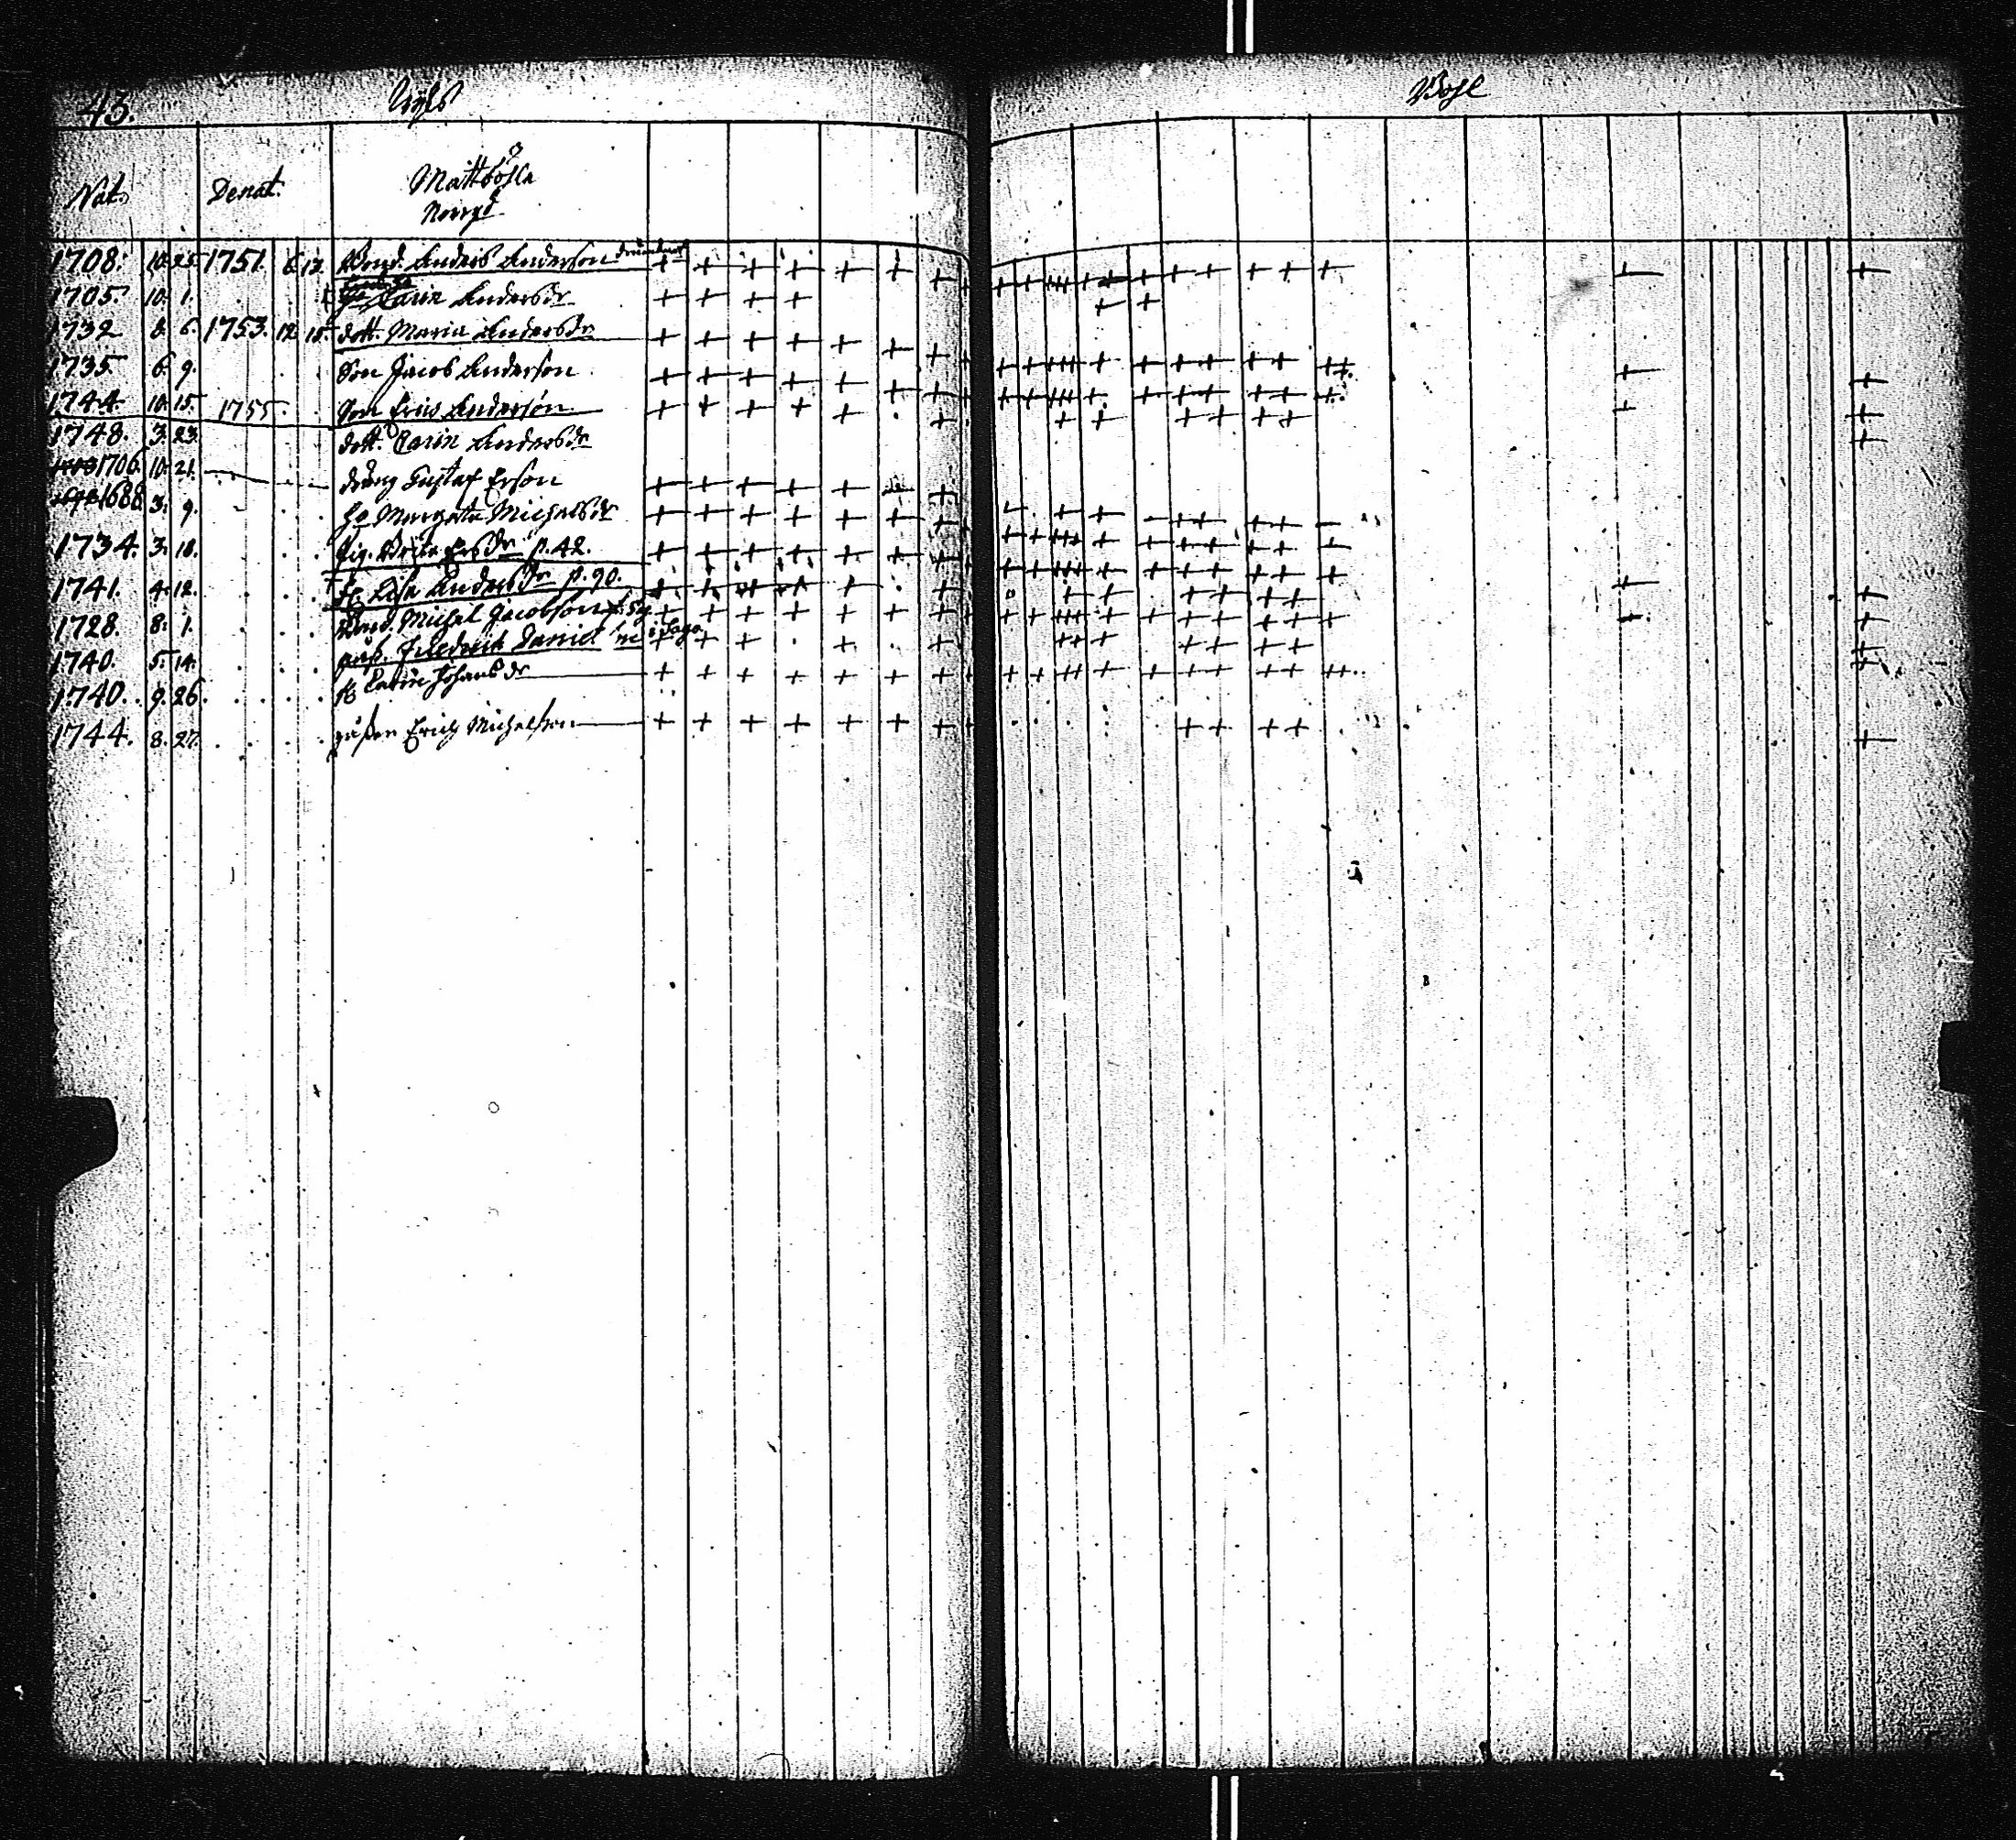 43.
Bohl
Nat. Denat. Mattböhle
Norrgd
1708. 10. 25. 1751. 6. 12. Bond. Anders Anderson
1705. 10. 1. Carin Andersdr
1732 8. 6. 1753. 12 15. dott. Maria Andersdr
1735. 6. 9. Son Jacob Anderson
1744. 10. 15. 1755. Son Eric Anderson
1748. 3. 23. dott. Carin Andersdr
1706. 10. 21. dräng Gustaf Erson
1688 3. 9. h. Margeta Michelsdr
1734. 3. 18. pig. Brita Ersdr p. 42.
1741. 4. 12. h. Lisa Andersdr p. 90.
1728. 8. 1. Bond. Michel Jacobson p. 59
1740. 5. 14. Friedrich Daniel
1740. 9. 26. h. Carin Johansdr
1744. 8. 27. Erich Michelson